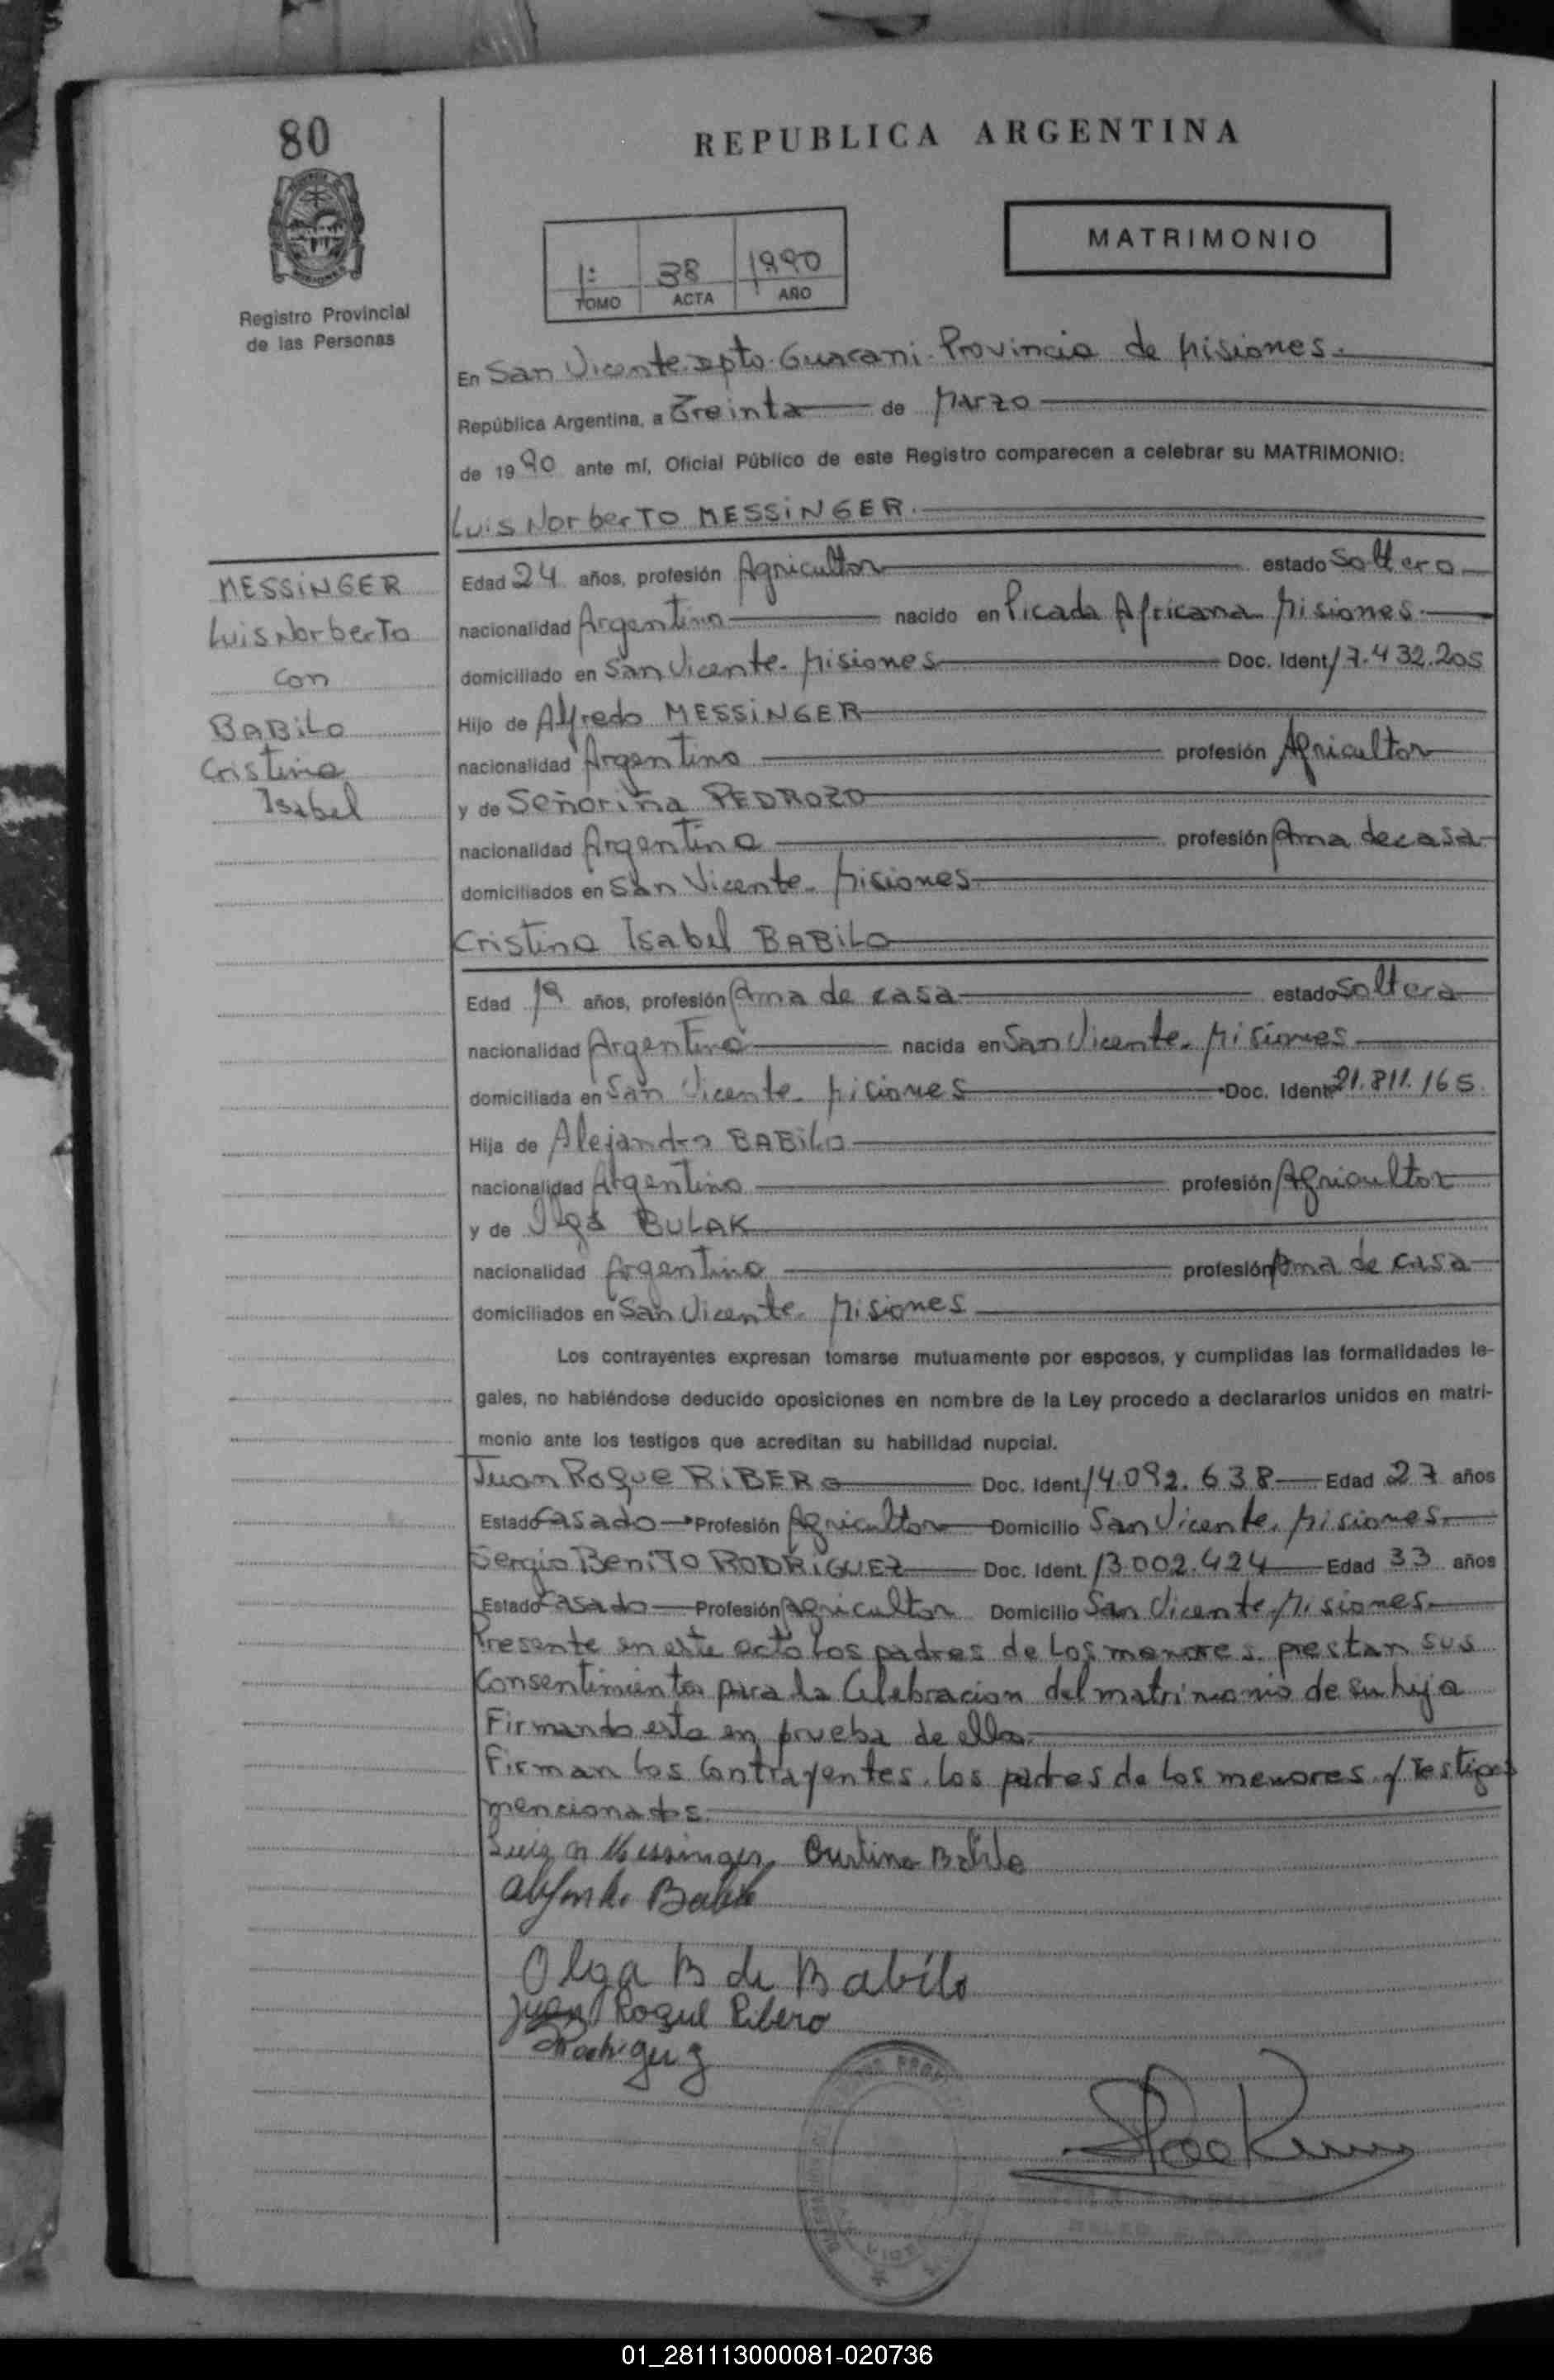 80
REPUBLICA ARGENTINA
MATRIMONIO
1: 38 1990
TOMO ACTA AÑO
Registro Provincial
de las Personas
En San Vicente. Dpto. Guarani. Provincia de Misiones.
República Argentina, a Treinta de Marzo
de 1990 ante mí, Oficial Público de este Registro comparecen a celebrar su MATRIMONIO:
Luis Norberto MESSiNGER.
MESSiNGER
Luis Norberto
con
BABiLo
Cristina
Isabel
Edad 24 años, profesión Agricultor estado Soltero
nacionalidad Argentino nacido en Picada Africana Misiones.
domiciliado en San Vicente. Misiones Doc. Ident. 17.432.205
Hijo de Alfredo MESSiNGER
nacionalidad Argentino profesión Agricultor
y de Señoriña PEDROZO
nacionalidad Argentina profesión Ama de casa
domiciliados en San Vicente. Misiones
Cristina Isabel BABiLo
Edad 19 años, profesión Ama de casa estado Soltera
nacionalidad Argentina nacida en San Vicente. Misiones
domiciliada en San Vicente. Misiones Doc. Ident. 21.811.165.
Hija de Alejandro BABiLo
nacionalidad Argentino profesión Agricultor
y de Olga BULAK
nacionalidad Argentina profesión Ama de casa
domiciliados en San Vicente. Misiones
Los contrayentes expresan tomarse mutuamente por esposos, y cumplidas las formalidades le-
gales, no habiéndose deducido oposiciones en nombre de la Ley procedo a declararlos unidos en matri-
monio ante los testigos que acreditan su habilidad nupcial.
Juan Roque RiBERo Doc. Ident. 14.092.638 Edad 27 años
Estado Casado Profesión Agricultor Domicilio San Vicente. Misiones.
Sergio BeniTo RODRiGUEZ Doc. Ident. 13.002.424 Edad 33 años
Estado Casado Profesión Agricultor Domicilio San Vicente. Misiones.
Presente en este acto Los padres de Los menores prestan sus
Consentimientos para la Celebracion del matrimonio de su hija
Firmando esta en prueba de ello.
Firman los Contrayentes. los padres de los menores y Testigos
mencionados.
Luis N Messinger Cristina Babilo
Babilo
Olga B de Babílo
Juan Roque Ribero
Rodriguez
01_281113000081-020736